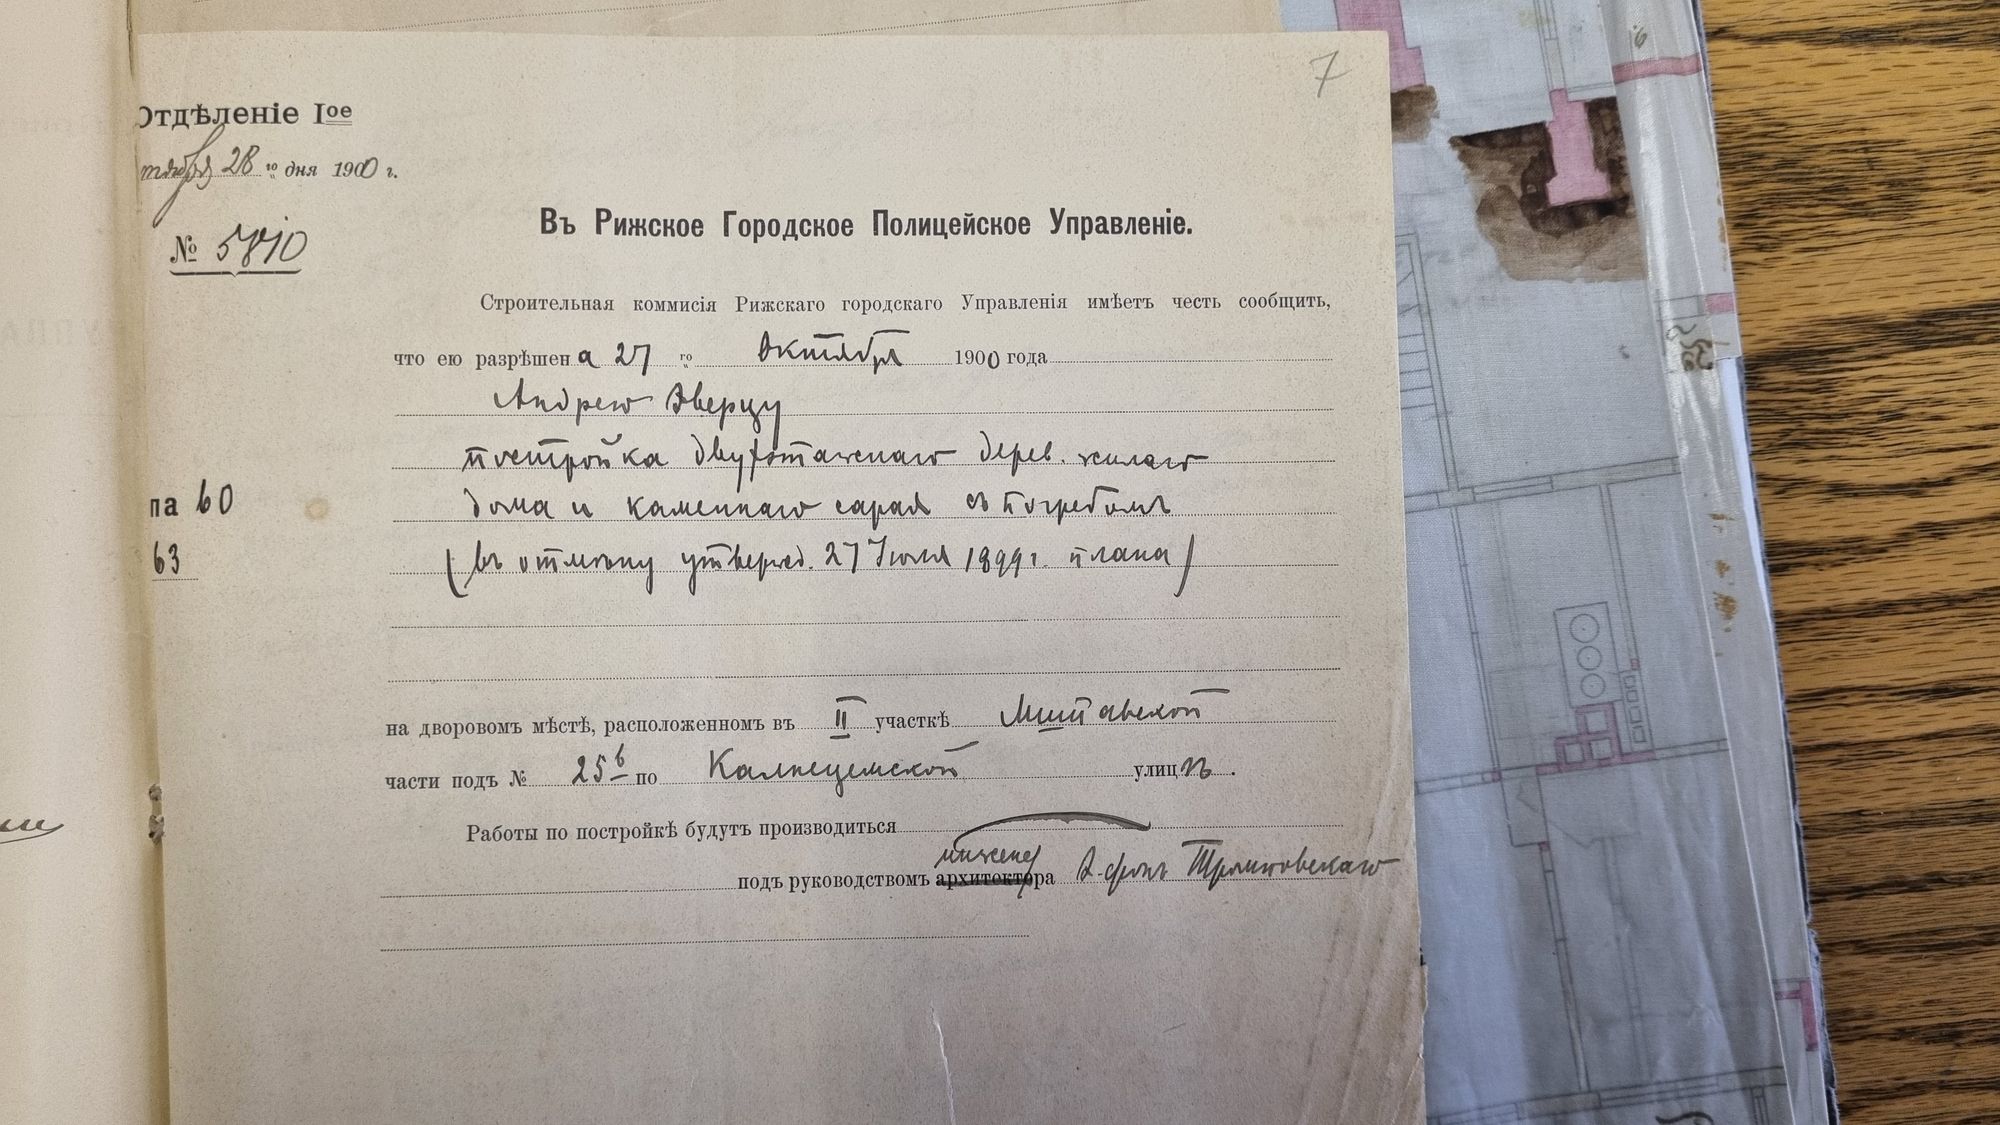 7
Отдѣленіе Iое
тября 28 го дня 1900 г.
№ 5810
Въ Рижское Городское Полицейское Управленіе.
Строительная коммисія Рижскаго городскаго Управленія имѣетъ честь сообщить,
что ею разрѣшена 27 го Октября 1900 года
Андрею Эверцу
постройка двухэтажнаго дерев. жилаго
па 60
дома и каменнаго сарая съ погребомъ
63
(въ отмѣну утвержд. 27 Іюля 1899 г. плана)
на дворовомъ мѣстѣ, расположенномъ въ II участкѣ Митавской
части подъ № 25б по Калнецемской улицѣ.
Работы по постройкѣ будутъ производиться
инжене
подъ руководствомъ архитектора фонъ Тромповскаго